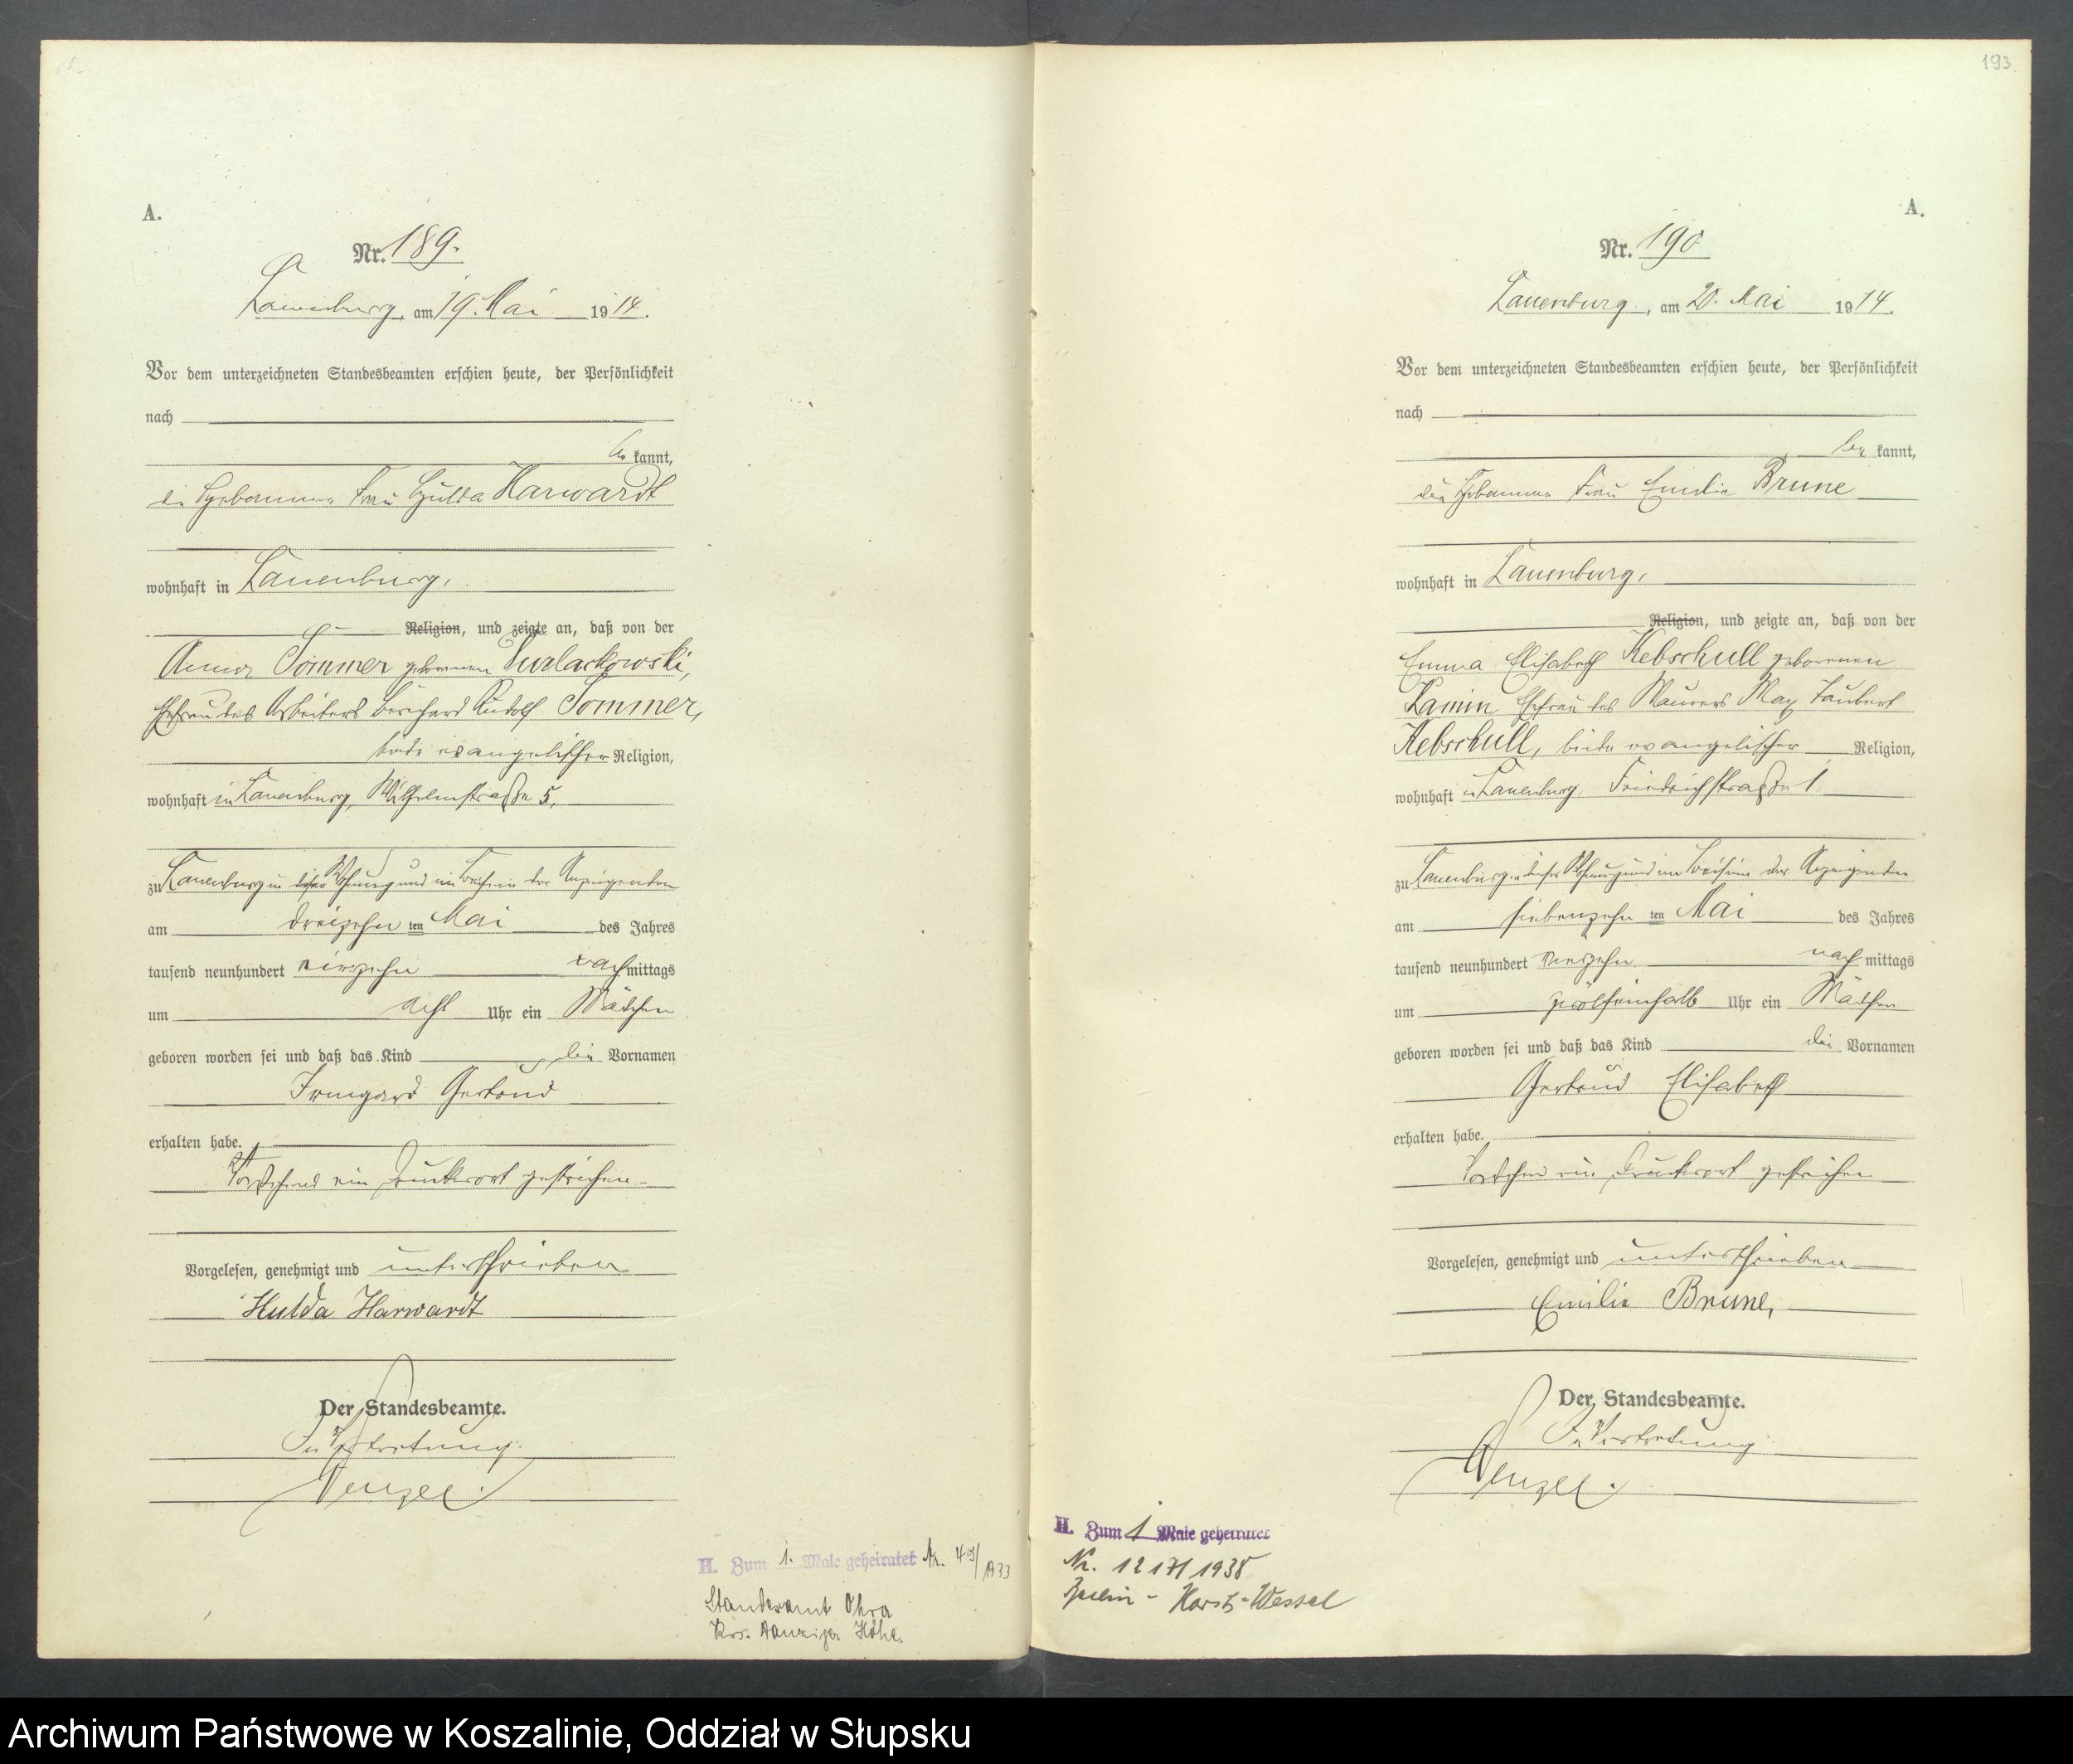 A.
Nr. 189.
Lauenburg, am 19. Mai 1914.
Vor dem unterzeichneten Standesbeamten erschien heute, der Persönlichkeit
nach
be kannt,
die Hebamme Frau Hulda Harwardt
wohnhaft in Lauenburg,
Religion, und zeigte an, daß von der
Anna Sommer geborenen
Ehefrau des Arbeiters Rudolf Sommer,
beide evangelischer Religion,
wohnhaft in Lauenburg, Wilhelmstraße 5,
zu Lauenburg in dieser Wohnung und im Beisein der Anzeigenden
am dreizehn ten Mai des Jahres
tausend neunhundert vierzehn nach mittags
um acht Uhr ein Mädchen
geboren worden sei und daß das Kind die Vornamen
Irmgard Gertrud
erhalten habe.
Vorstehend ein Druckwort gestrichen.
Vorgelesen, genehmigt und unterschrieben
Hulda Harwardt
Der Standesbeamte.
In Vertretung.
Wenzel.
H. Zum 1. Male geheiratet Nr. /1933
Standesamt Ohra
Krs. Danziger Höhe.
193.
A.
Nr. 190
Lauenburg, am 20. Mai 1914.
Vor dem unterzeichneten Standesbeamten erschien heute, der Persönlichkeit
nach
be kannt,
die Hebamme Frau Emilie Brune
wohnhaft in Lauenburg,
Religion, und zeigte an, daß von der
Emma Elisabeth Kebschull geborenen
Lamin Ehefrau des Maurers Max
Kebschull, beide evangelischer Religion,
wohnhaft in Lauenburg, Friedrichstraße 1.
zu Lauenburg in dieser Wohnung und im Beisein der Anzeigenden
am siebenzehn ten Mai des Jahres
tausend neunhundert vierzehn nach mittags
um zwölfeinhalb Uhr ein Mädchen
geboren worden sei und daß das Kind die Vornamen
Gertrud Elisabeth
erhalten habe.
Vorstehend ein Druckwort gestrichen
Vorgelesen, genehmigt und unterschrieben
Emilie Brune,
Der Standesbeamte.
In Vertretung.
Wenzel.
H. Zum 1 Male geheiratet
Nr. 1938
Berlin - Horst-Wessel
Archiwum Państwowe w Koszalinie, Oddział w Słupsku